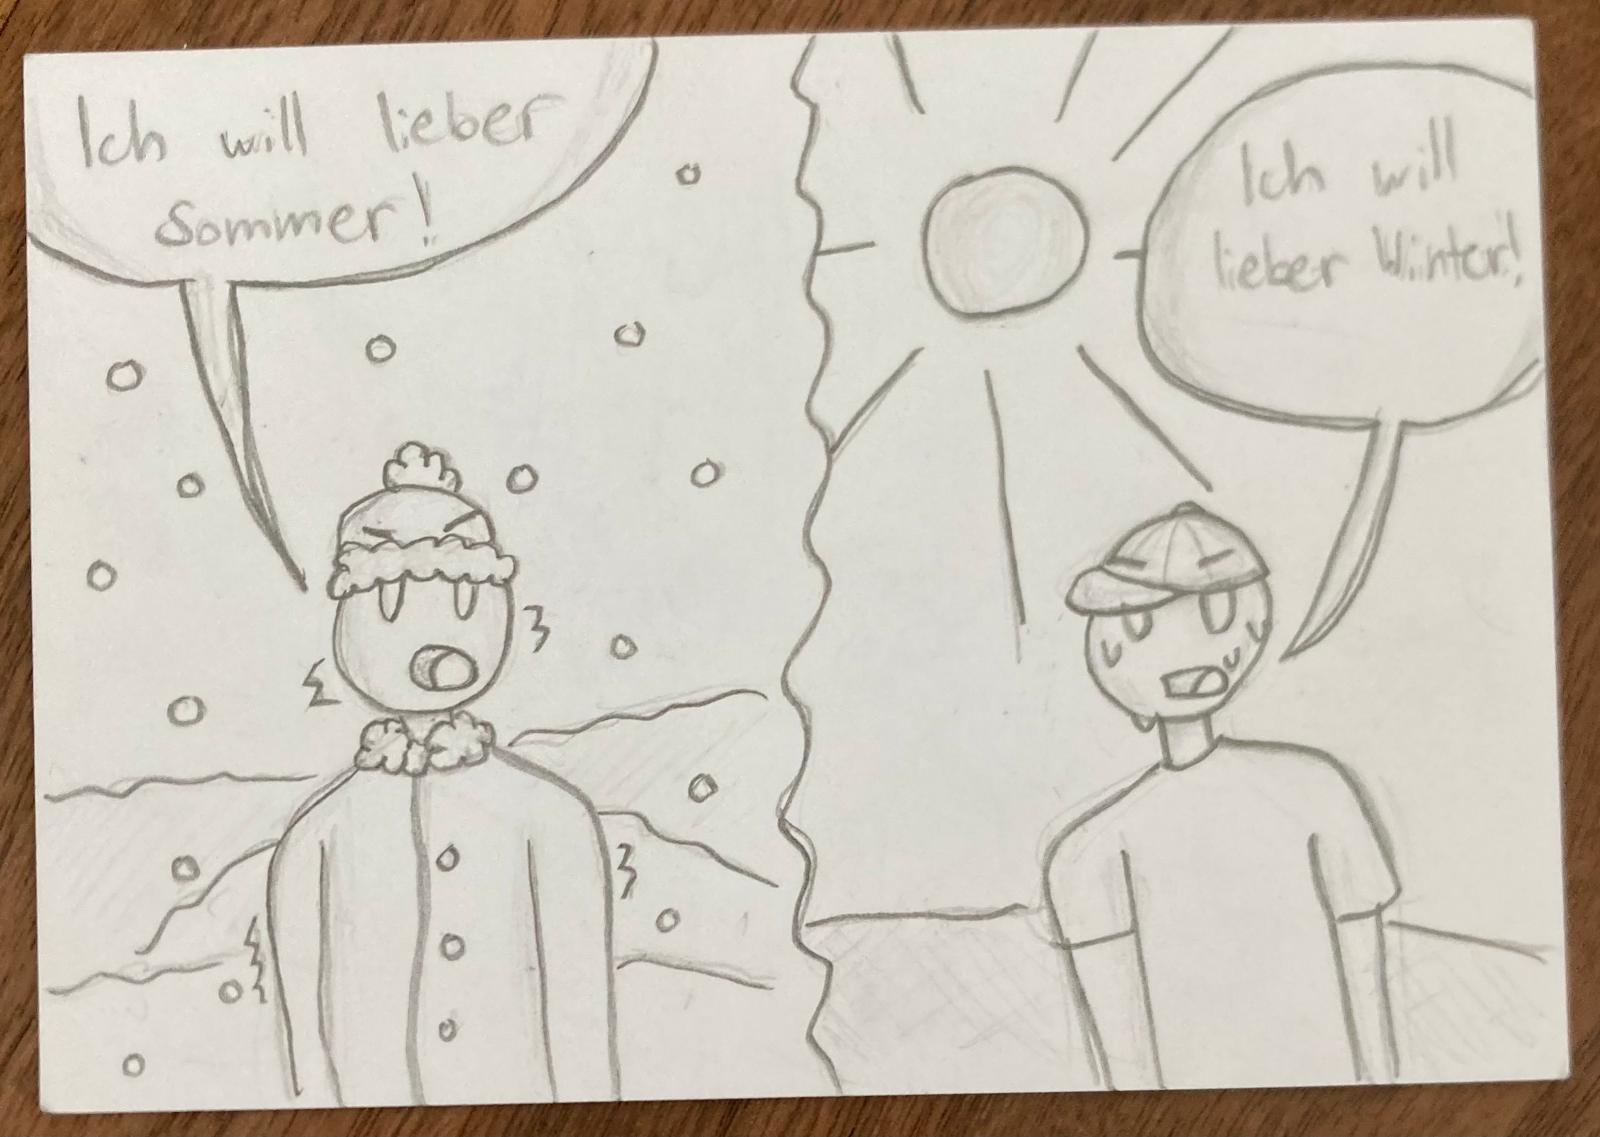 Ich will lieber
Sommer!
Ich will
lieber Winter!